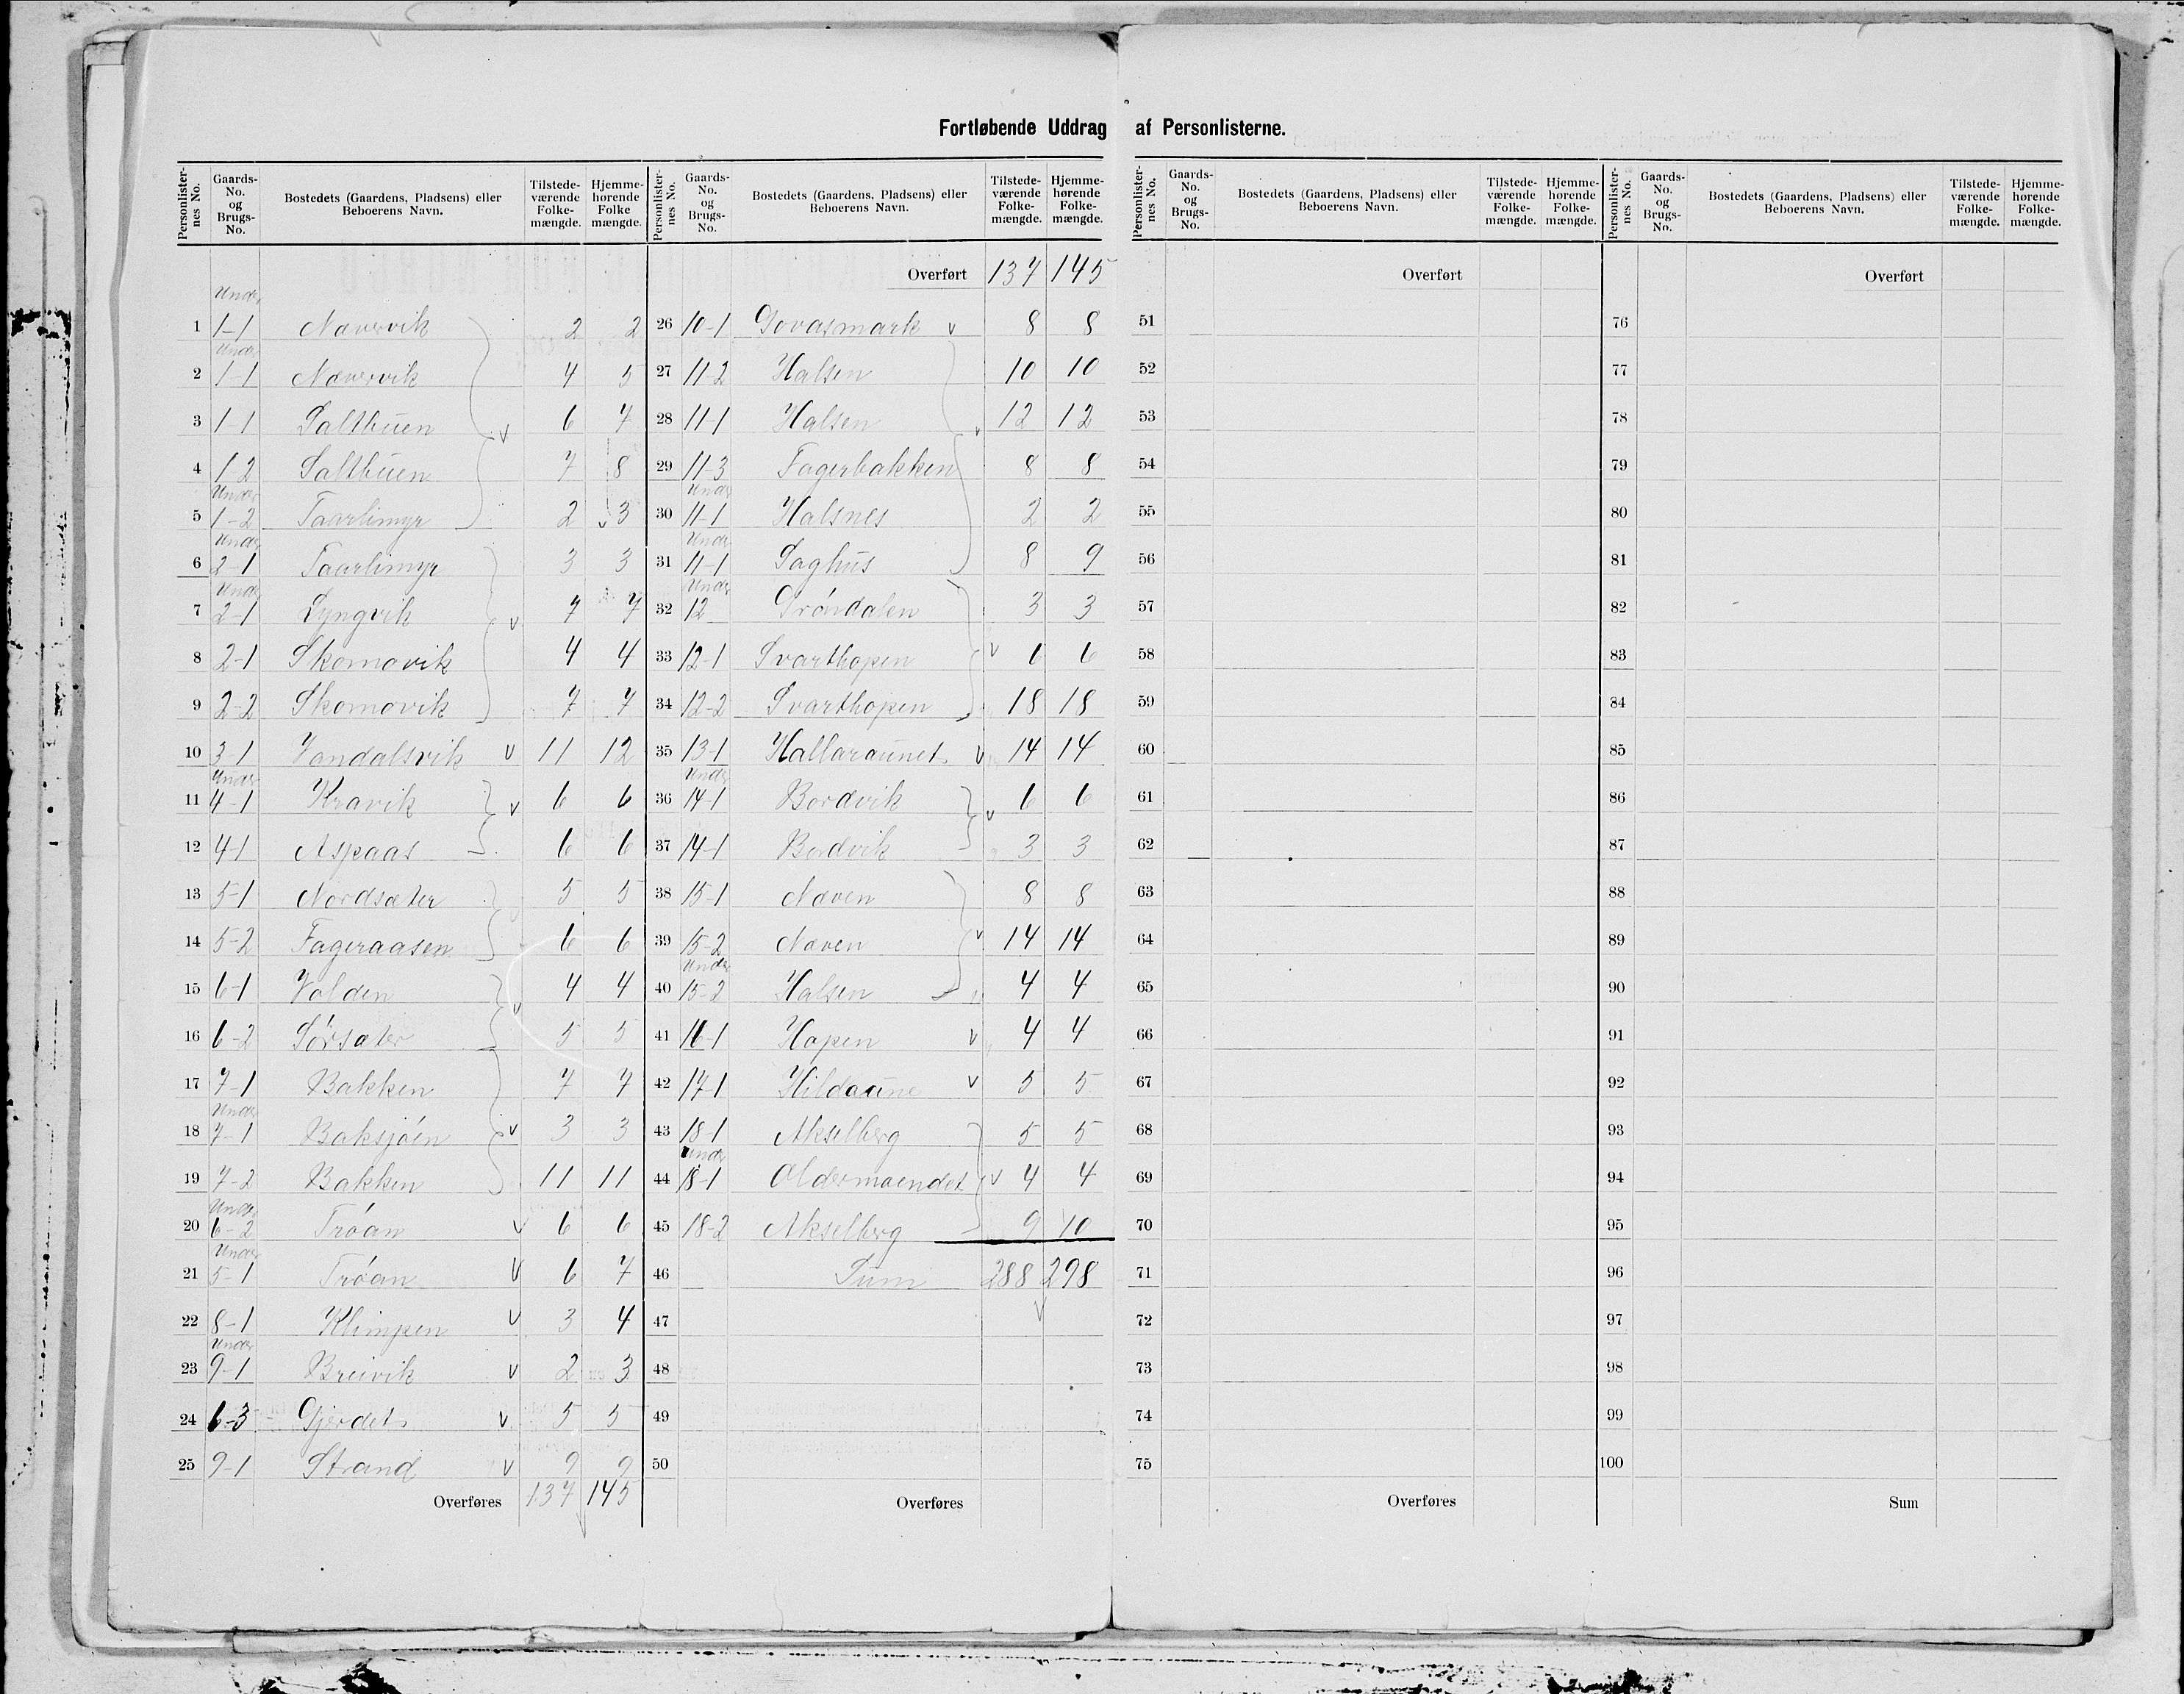 Fortløbende Uddrag af Personlisterne.
Personlister-nes No. Gaards-No. og Brugs-No. Bostedets (Gaardens, Pladsens) eller Beboerens Navn. Tilstede-værende Folke-mængde. Hjemme-hørende Folke mængde.
Under
1 1-1 Nævervik 2 2
Under
2 1-1 Nævervik 4 5
3 1-1 Saltbuen 6 7
4 1-2 Saltbuen 7 8
Under
5 1-2 Taarlimyr 2 3
Under
6 2-1 Taarlimyr 3 3
Under
7 2-1 Lyngvik 7 7
8 2-1 Skomovik 4 4
9 2-2 Skomovik 7 7
10 3-1 Vandalsvik v 11 12
Under
11 4-1 Kravik v 6 6
12 4-1 Aspaas 6 6
13 5-1 Nordsæter 5 5
14 5-2 Fageraasen 6 6
15 6-1 Volden 4 4
16 6-2 Sørsæter 5 5
17 7-1 Bakken 7 7
Under
18 7-1 Baksjøen v 3 3
19 7-2 Bakken 11 11
Under
20 6-2 Trøan v 6 6
Under
21 5-1 Trøan v 6 7
22 8-1 Klimpen v 3 4
Under
23 9-1 Breivik v 2 3
24 6-3 Gjerdet v 5 5
25 9-1 Strand v 9 9
Overføres 137 145
Personlister-nes No. Gaards-No. og Brugs-No. Bostedets (Gaardens, Pladsens) eller Beboerens Navn. Tilstede-værende Folke-mængde. Hjemme-hørende Folke-mængde.
Overført 137 145
26 10-1 Govasmark v 8 8
27 11-2 Halsen 10 10
28 11-1 Halsen v 12 12
29 11-3 Fagerbakken 8 8
Under
30 11-1 Halsnes 2 2
Under
31 11-1 Saghus 8 9
Under
32 12 Grøndalen 3 3
33 12-1 Svarthopen v 6 6
34 12-2 Svarthopen 18 18
35 13-1 Hallaraunet v 14 14
Under
36 14-1 Bordvik v 6 6
37 14-1 Bordvik 3 3
38 15-1 Næven 8 8
39 15-2 Næven v 14 14
Under
40 15-2 Halsen 4 4
41 16-1 Hopen v 4 4
42 17-1 Hildaune v 5 5
43 18-1 Akselberg 5 5
Under
44 18-1 Oldermoendet v 4 4
45 18-2 Akselberg 9 10
46 Sum 288 298
47
48
49
50
Overføres
Personlister-nes No. Gaards-No. og Brugs-No. Bostedets (Gaardens, Pladsens) eller Beboerens Navn. Tilstede-værende Folke-mængde. Hjemme-hørende Folke-mængde.
Overført
51
52
53
54
55
56
57
58
59
60
61
62
63
64
65
66
67
68
69
70
71
72
73
74
75
Overføres
Personlister-nes No. Gaards-No. og Brugs-No. Bostedets (Gaardens, Pladsens) eller Beboerens Navn. Tilstede-værende Folke-mængde. Hjemme-hørende Folke-mængde.
Overført
76
77
78
79
80
81
82
83
84
85
86
87
88
89
90
91
92
93
94
95
96
97
98
99
100
Sum